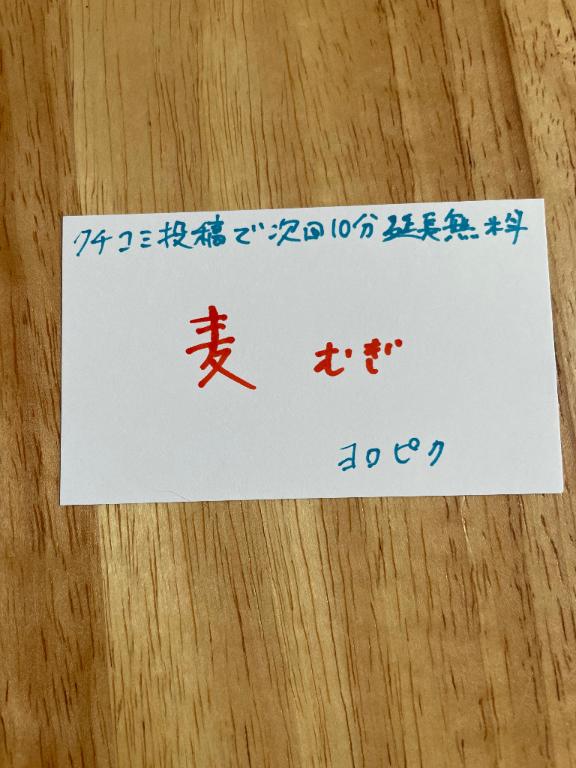 クチコミ投稿で次回10分延長無料
麦 むぎ
ヨロピク